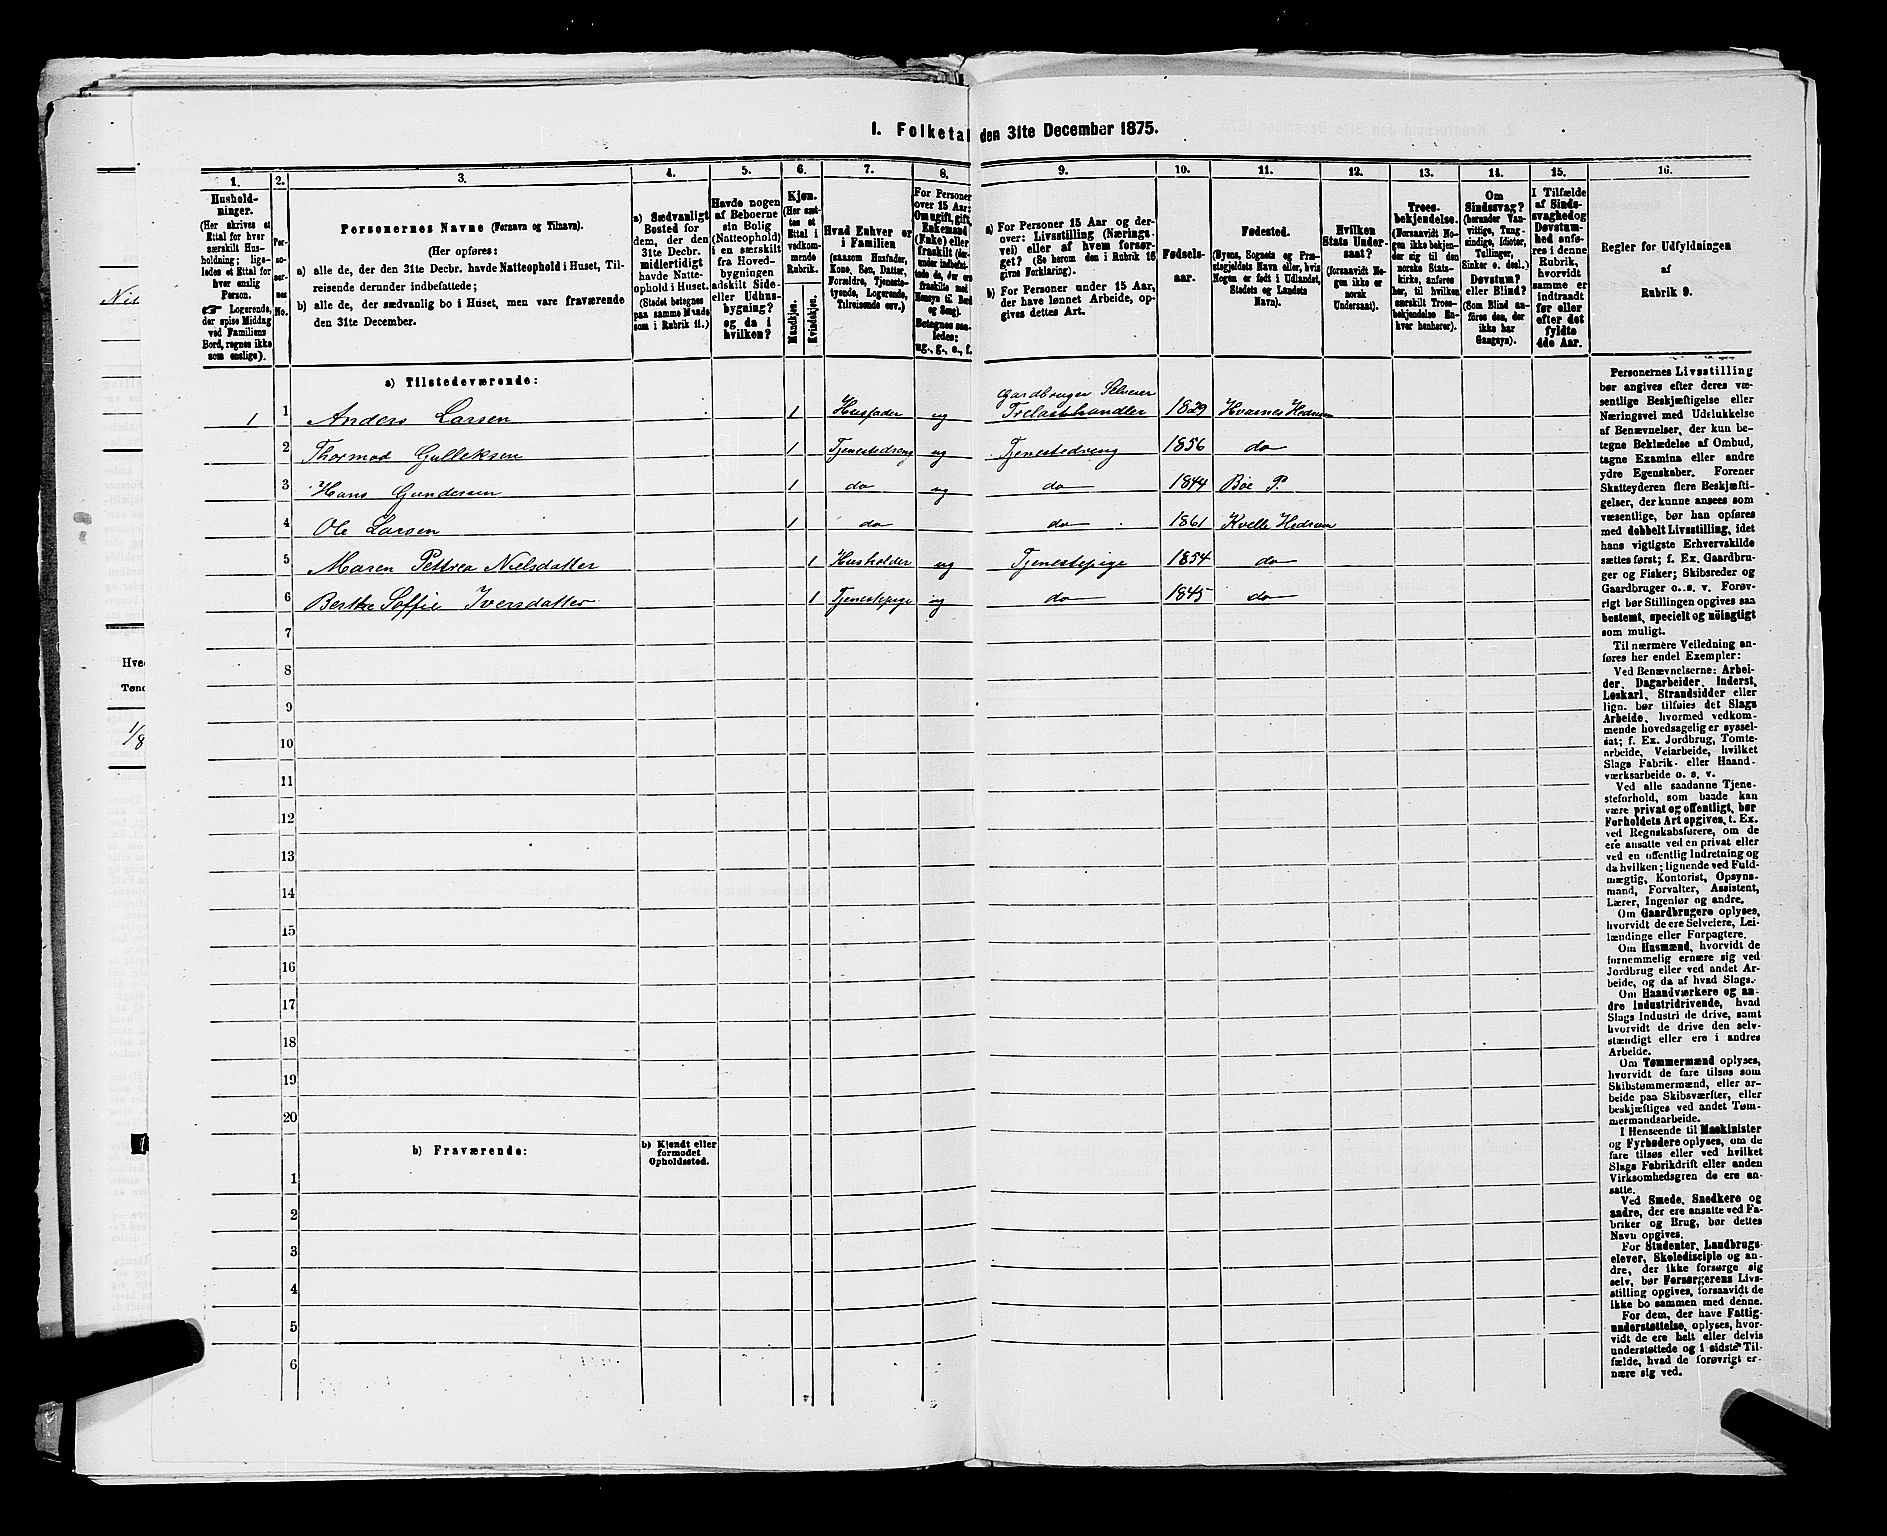 I. Folketal den 31te December 1875.
1.
2.
3.
4.
5.
6.
7.
8.
9.
10.
11.
12.
13.
14.
15.
16.
Hushold-
ninger.
(Her skrives et
Ettal for hver
særskilt Hus-
holdning; lige-
ledes et Ettal for
hver enslig
Person.
☞ Logerende,
der spise Middag
ved Familiens
Bord, regnes ikke
som enslige).
Per-
so-
ner-
nes
No.
Personernes Navne (Fornavn og Tilnavn).
(Her opføres:
a) alle de, der den 31te Decbr. havde Natteophold i Huset, Til-
reisende derunder indbefattede;
b) alle de, der sædvanlig bo i Huset, men vare fraværende
den 31te December.
a) Sædvanligt
Bosted for
dem, der den
31te Decbr.
midlertidigt
havde Natte-
ophold i Huset.
(Stedet betegnes
paa samme Maade
som i Rubrik 11.)
Havde nogen
af Beboerne
sin Bolig
(Natteophold)
i en særskilt
fra Hoved-
bygningen
adskilt Side-
eller Udhus-
bygning?
og da i
hvilken?
Kjøn.
(Her sæt-
tes et
Ettal i
vedkom-
mende
Rubrik.
Mandkjøn.
Kvindekjøn.
Hvad Enhver er
i Familien
(saasom Husfader,
Kone, Søn, Datter,
Forældre, Tjeneste-
tyende, Logerende,
Tilreisende osv.)
For Personer
over 15 Aar:
Om ugift, gift,
Enkemand
(Enke) eller
fraskilt
Betegnes saa-
ledes:
ug., g., e., f.
a) For Personer 15 Aar og der-
over: Livsstilling (Nærings-
vei) eller af hvem forsør-
get? (Se herom den i Rubrik 16
givne Forklaring).
b) For Personer under 15 Aar,
der have lønnet Arbeide, op-
gives dettes Art.
Fødsels-
aar.
Fødested.
(Byens, Sognets og Præ-
stegjeldets Navn eller, hvis
Nogen er født i Udlandet,
Stedets og Landets
Navn).
Hvilken
Stats Under-
saat?
(forsaavidt No-
gen ikke er
norsk
Undersaat).
Troes-
bekjendelse.
(Forsaavidt No-
gen ikke bekjen-
der sig til den
norske Stats-
kirke, anføres
her, til hvilken
særskilt Troes-
bekjendelse En-
hver henhører).
Om
Sindssvag?
(herunder Van-
vittige, Tung-
sindige, Idioter,
Tullinger,
Sinker o. desl.)
Døvstum?
eller Blind?
(Som Blind an-
føres den, der
ikke har
Gangsyn).
I Tilfælde
af Sinds-
svaghed og
Døvstum-
hed anfø-
res i denne
Rubrik,
hvorvidt
samme er
indtraadt
før eller
efter det
fyldte
4de Aar.
Regler for Udfyldningen
af
Rubrik 9.
a) Tilstedeværende:
Gardbruger Selveier
1 1 Anders Larsen 1 Husfader ug Trelasthandler 1829 Hvarnes Hedrum
2 Thormod Gulleksen 1 Tjenestedreng ug Tjenestedreng 1856 do
3 Hans Gundersen 1 do ug do 1844 Bøe P.
4 Ole Larsen 1 do do 1861 Kvelle Hedrum
5 Maren Pettrea Nielsdatter 1 Husholder ug Tjenestepige 1854 do
6 Berthe Soffie Iversdatter 1 Tjenestepige ug do 1845 do
7
8
9
10
11
12
13
14
15
16
17
18
19
20
b) Fraværende:
b) Kjendt eller
formodet
Opholdssted.
1
2
3
4
5
6
Personernes Livsstilling
bør angives efter deres væ-
sentlige Beskjæftigelse eller
Næringsvei med Udelukkelse
af Benævnelser, der kun be-
tegne Beklædelse af Ombud,
tagne Examina eller andre
ydre Egenskaber. Forener
Skatteyderen flere Beskjæfti-
gelser, der kunne ansees som
væsentlige, bør han opføres
med dobbelt Livsstilling, idet
hans vigtigste Erhvervskilde
sættes først; f. Ex. Gaardbru-
ger og Fisker; Skibsreder og
Gaardbruger o. s. v. Forøv-
rigt bør Stillingen opgives saa
bestemt, specielt og nöiagtigt
som muligt.
Til nærmere Veiledning an-
føres her endel Exempler:
Ved Benævnelserne: Arbei-
der, Dagarbeider, Inderst,
Løskarl, Strandsidder eller
lign. bør tilføies det Slags
Arbeide, hvormed vedkom-
mende hovedsagelig er syssel-
sat; f. Ex. Jordbrug, Tomte-
arbeide, Veiarbeide, hvilket
Slags Fabrik- eller Haand-
værksarbeide o. s. v.
Ved alle saadanne Tjene-
steforhold, som baade kan
være privat og offentligt, bør
Forholdets Art opgives, t. Ex.
ved Regnskabsførere, om de
ere ansatte ved en privat eller
ved en offentlig Indretning og
da hvilken; lignende ved Fuld-
mægtig, Kontorist, Opsyns-
mand, Forvalter, Assistent,
Lærer, Ingeniør og andre.
Om Gaardbrugere oplyses,
hvorvidt de ere Selveiere, Lei-
lændinge eller Forpagtere.
Om Husmænd, hvorvidt de
fornemmelig ernære sig ved
Jordbrug eller ved andet Ar-
beide, og da af hvad Slags.
Om Haandværkere og an-
dre Industridrivende, hvad
Slags Industri de drive, samt
hvorvidt de drive den selv-
stændigt eller ere i andres
Arbeide.
Om Tømmermænd oplyses,
hvorvidt de fare tilsøs som
Skibstømmermænd, eller ar-
beide paa Skibsværfter, eller
beskjæftiges ved andet Tøm-
mermandsarbeide.
I Henseende til Maskinister
og Fyrbødere oplyses, om de
fare tilsøs eller ved hvilket
Slags Fabrikdrift eller anden
Virksomhedsgren de ere an-
satte.
Ved Smede, Snedkere og
andre, der ere ansatte ved Fa-
briker og Brug, bør dettes
Navn opgives.
For Studenter, Landbrugs-
elever, Skoledisciple og an-
dre, der ikke forsørge sig
selv, bør Forsørgerens Livs-
stilling opgives, forsaavidt de
ikke bo sammen med denne.
For dem, der have Fattig-
understøttelse, oplyses, hvor-
vidt de ere helt eller delvis
understøttede og i sidste Til-
fælde, hvad de forøvrigt er-
nære sig ved.